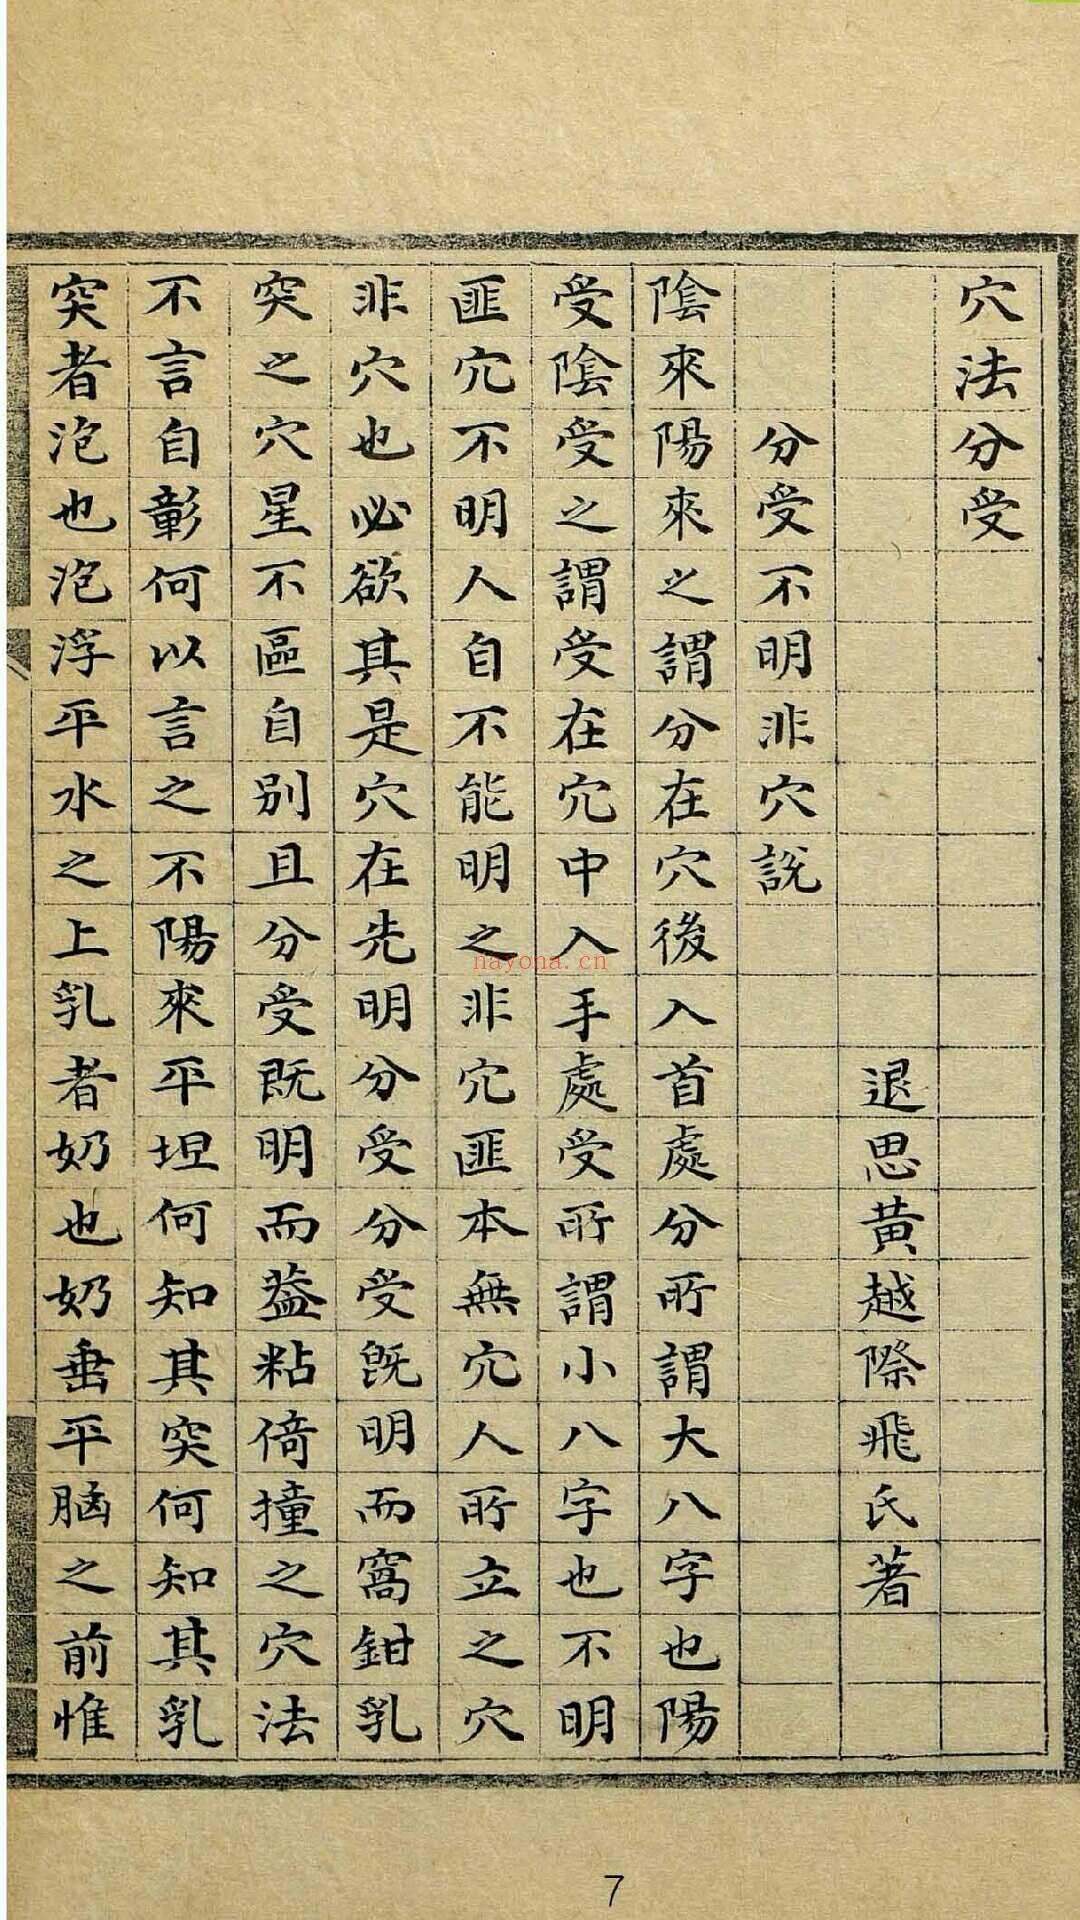 穴法分受
退思黄越際飛氏著
分受不明非穴説
陰來陽來之謂分在穴後入首處分所謂大八字也陽
受陰受之謂受在穴中入手處受所謂小八字也不明
匪穴不明人自不能明之非穴匪本無穴人所立之穴
非穴也必欲其是穴在先明分受分受旣明而窩鉗乳
突之穴星不區自別且分受旣明而葢粘倚撞之穴法
不言自彰何以言之不陽來平坦何知其突何知其乳
突者泡也泡浮平水之上乳者奶也奶垂平脳之前惟
nayona.cn
7